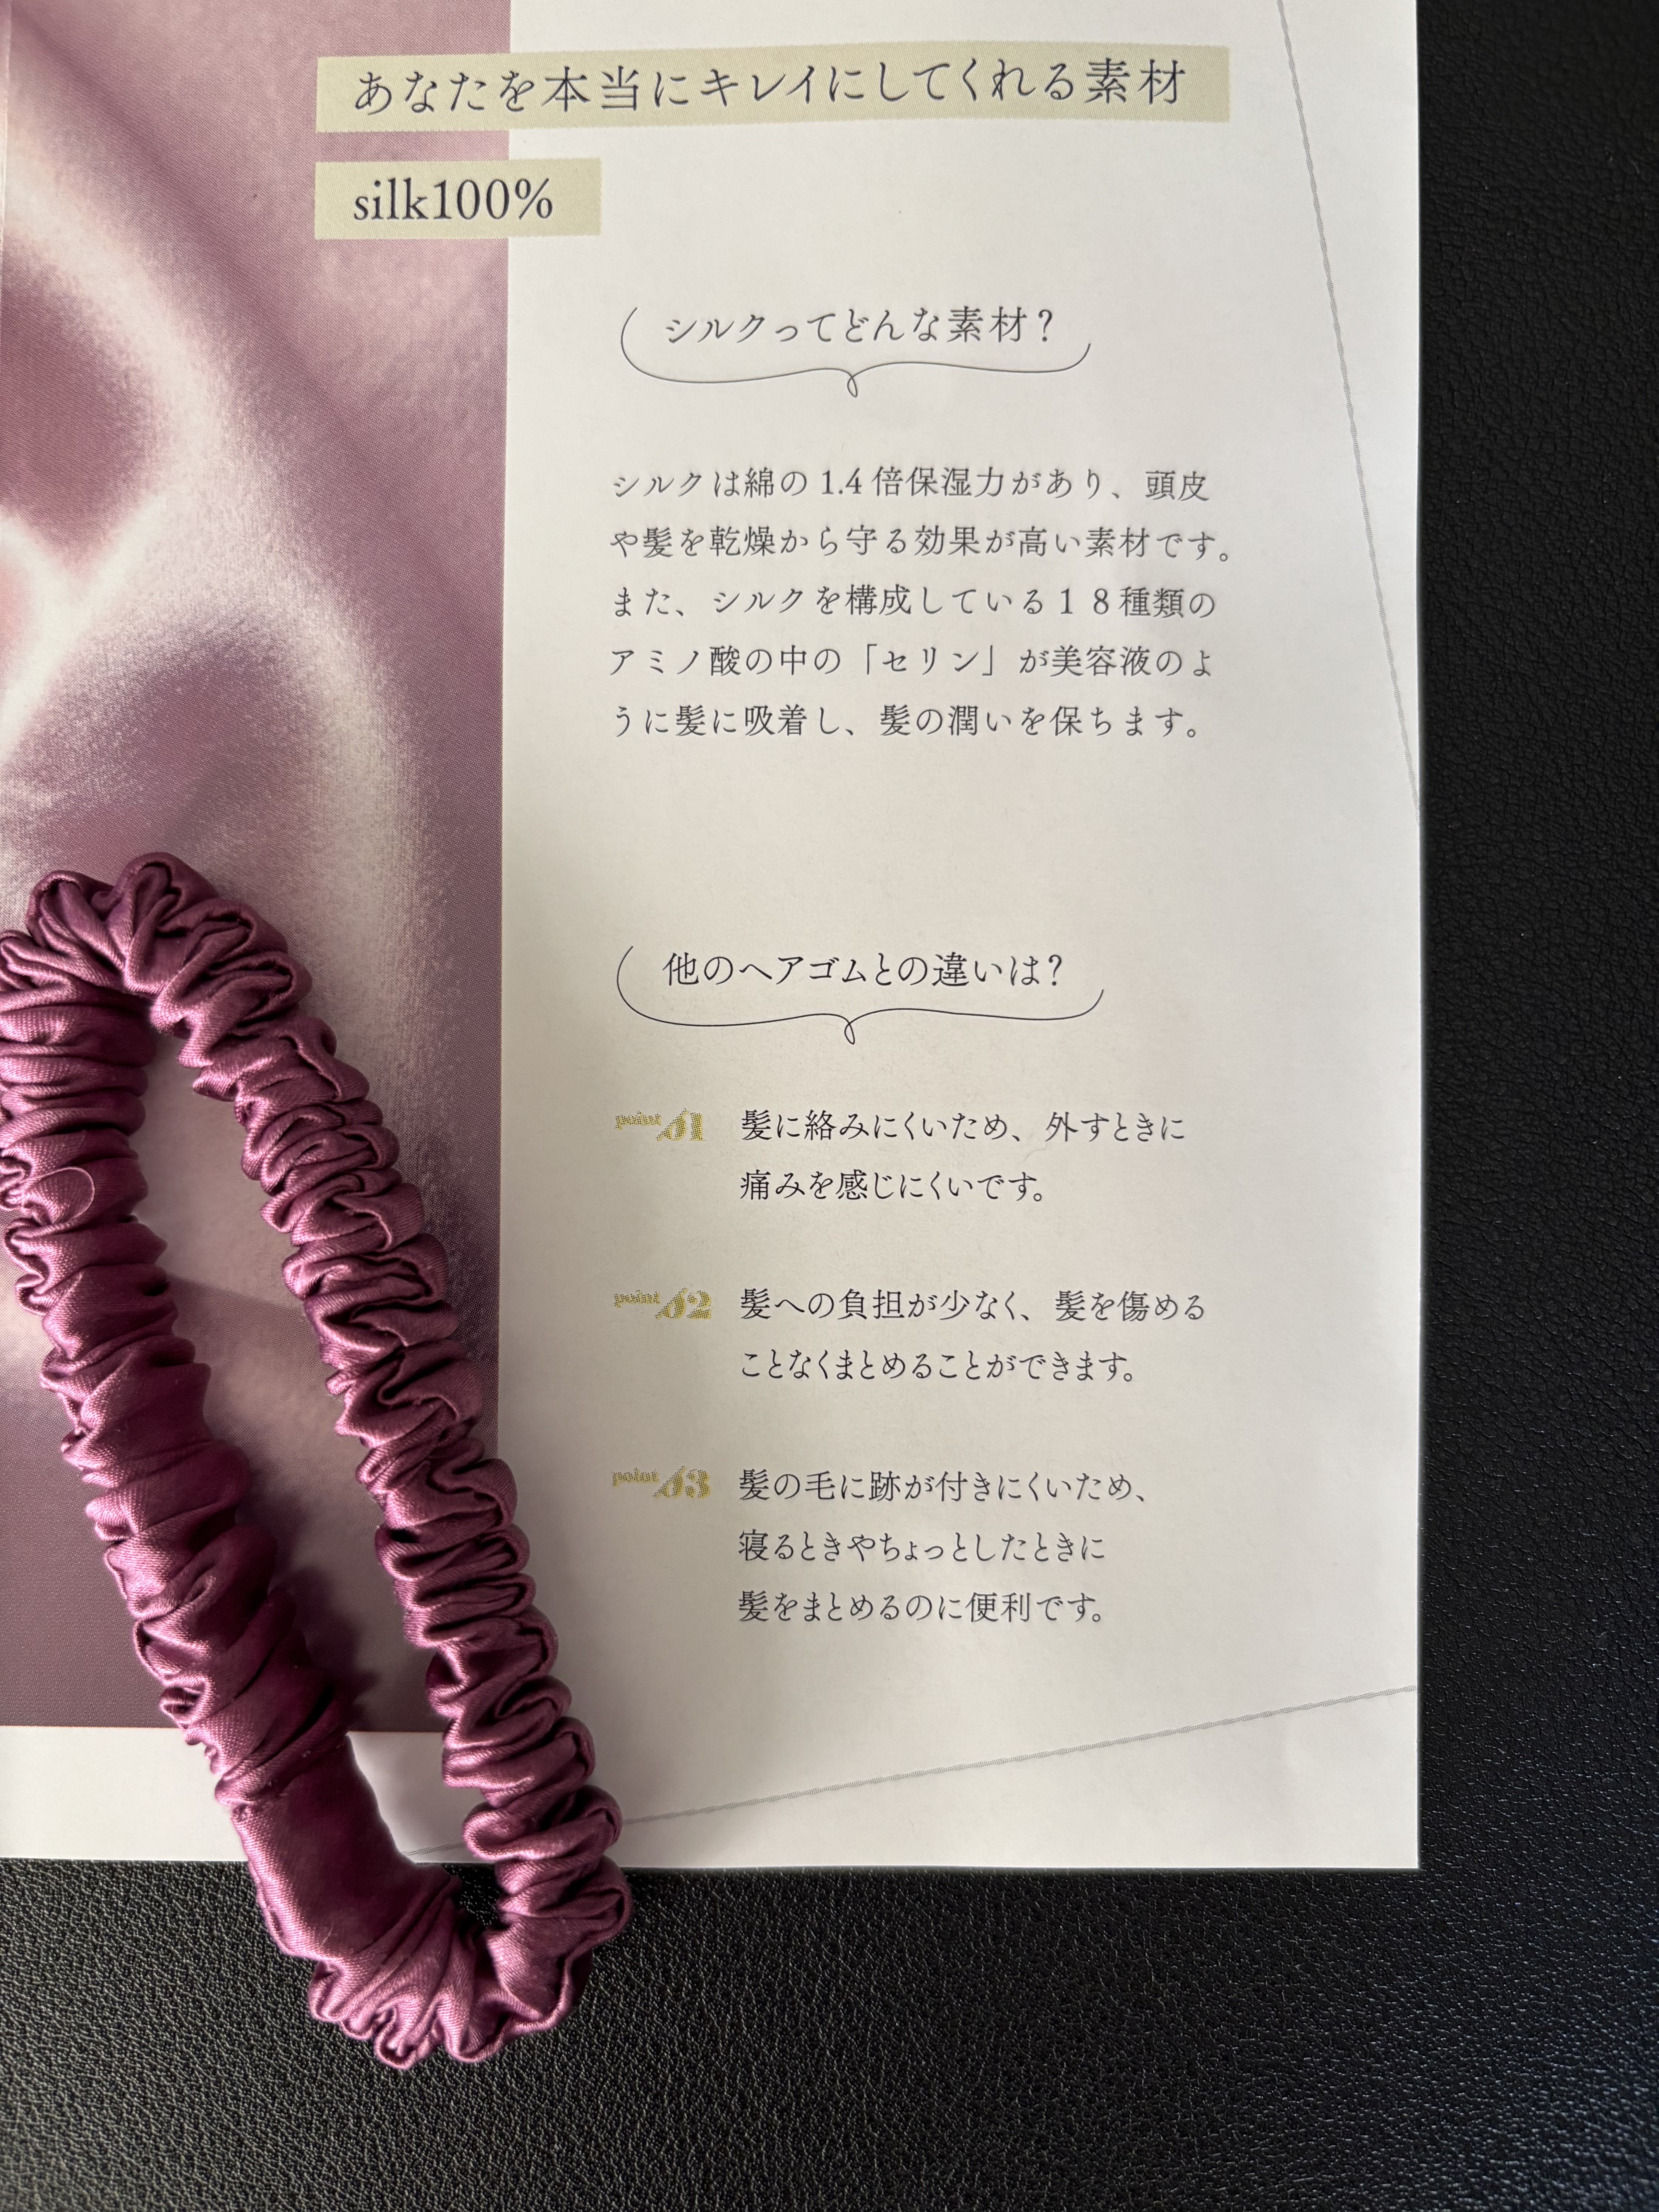 あなたを本当にキレイにしてくれる素材
silk100%
シルクってどんな素材？
シルクは綿の 1.4 倍保湿力があり、頭皮
や髪を乾燥から守る効果が高い素材です。
また、シルクを構成している１８種類の
アミノ酸の中の「セリン」が美容液のよ
うに髪に吸着し、髪の潤いを保ちます。
他のヘアゴムとの違いは？
point 01 髪に絡みにくいため、外すときに
痛みを感じにくいです。
point 02 髪への負担が少なく、髪を傷める
ことなくまとめることができます。
point 03 髪の毛に跡が付きにくいため、
寝るときやちょっとしたときに
髪をまとめるのに便利です。